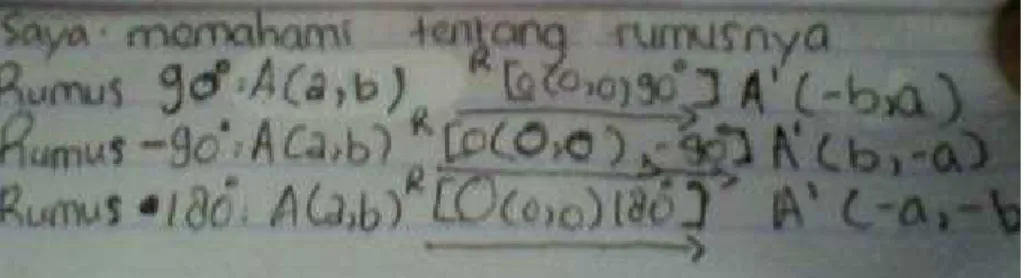 Saya memahami tentang rumusnya
Rumus 90°: A(a,b) R[O(0,0)90°] A'(-b,a)
Rumus -90°: A(a,b) R[O(0,0),-90°] A'(b,-a)
Rumus 180°: A(a,b) R[O(0,0)180°] A'(-a,-b